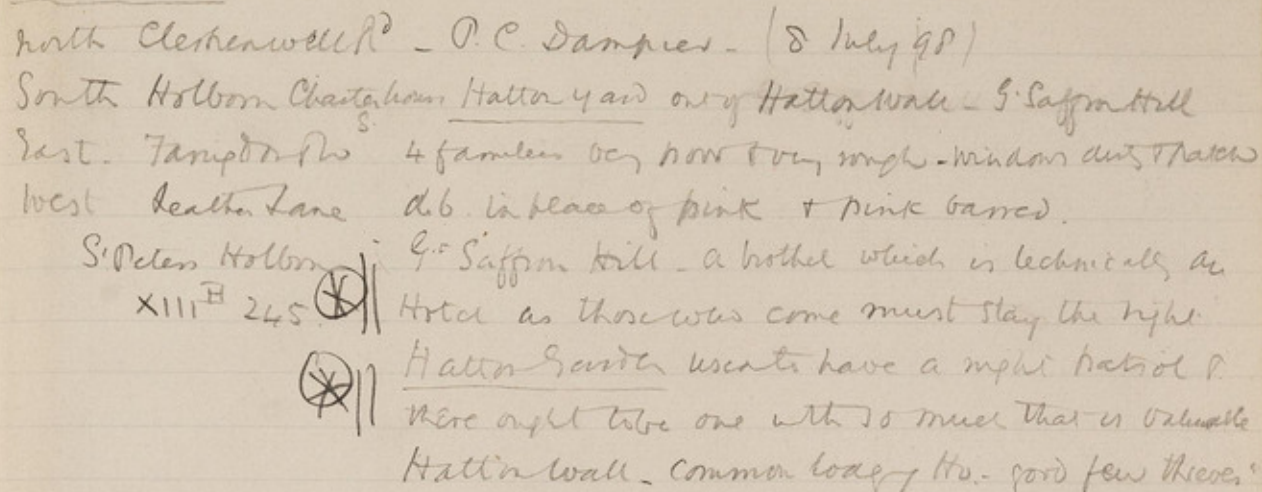 North Clerkenwell Rd - P.C. Dampier - (8 July 98)
South Holborn Charterhouse S. Hatton yard out of Hatton Wall - Gt Saffron Hill
East. Farringdon Rd 4 families very poor & very rough - windows dirty & patched
West Leather Lane d.b. in place of pink & pink barred.
St Peters Holborn Gt Saffron Hill - a brothel which is technically an
XIII H 245 Hotel as those who come must stay the night
Hatton Garden used to have a night patrol P.
there ought to be one with so much that is valuable
Hatton Wall - Common lodgg Ho. - good few thieves